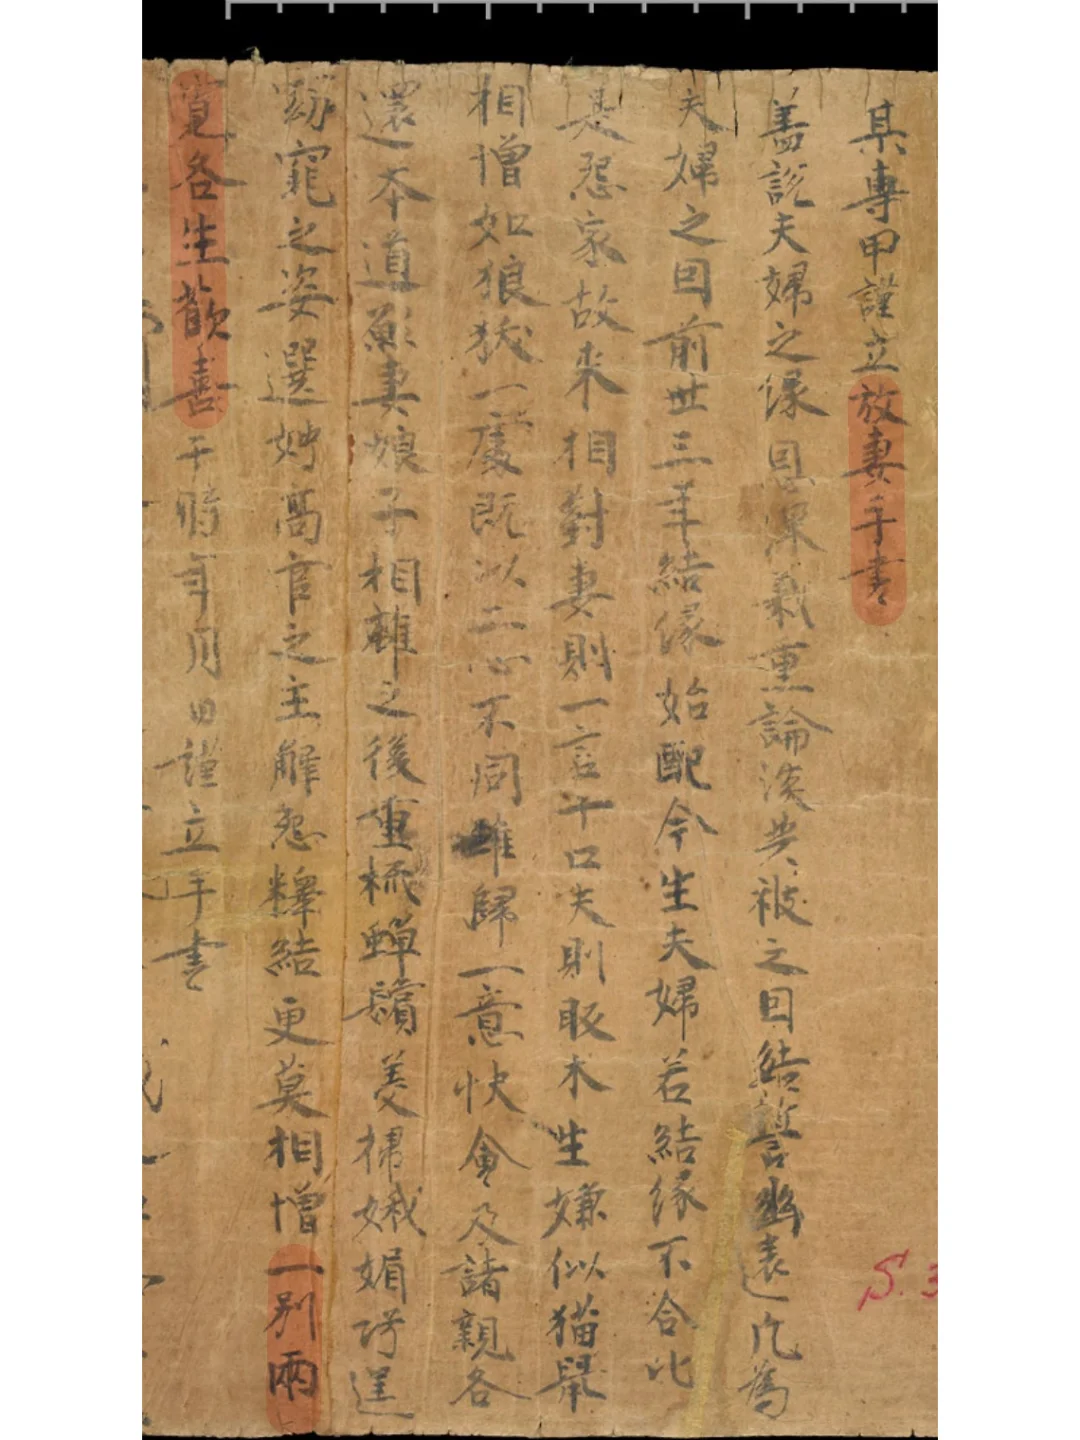 某專甲謹立放妻手書
蓋說夫婦之緣恩深義重論談共被之因結誓幽遠凡為
夫婦之因前世三年結緣始配今生夫婦若結緣不合比
是怨家故來相對妻則一言十口夫則眅木生嫌似猫鼠
相憎如狼狀一處既以二心不同難歸一意快會及諸親各
還本道願妻娘子相離之後重梳蟬鬢美掃娥媚巧逞
窈窕之姿選娉高官之主解怨釋結更莫相憎一別兩
寬各生歡喜于時年月日謹立手書
S.3